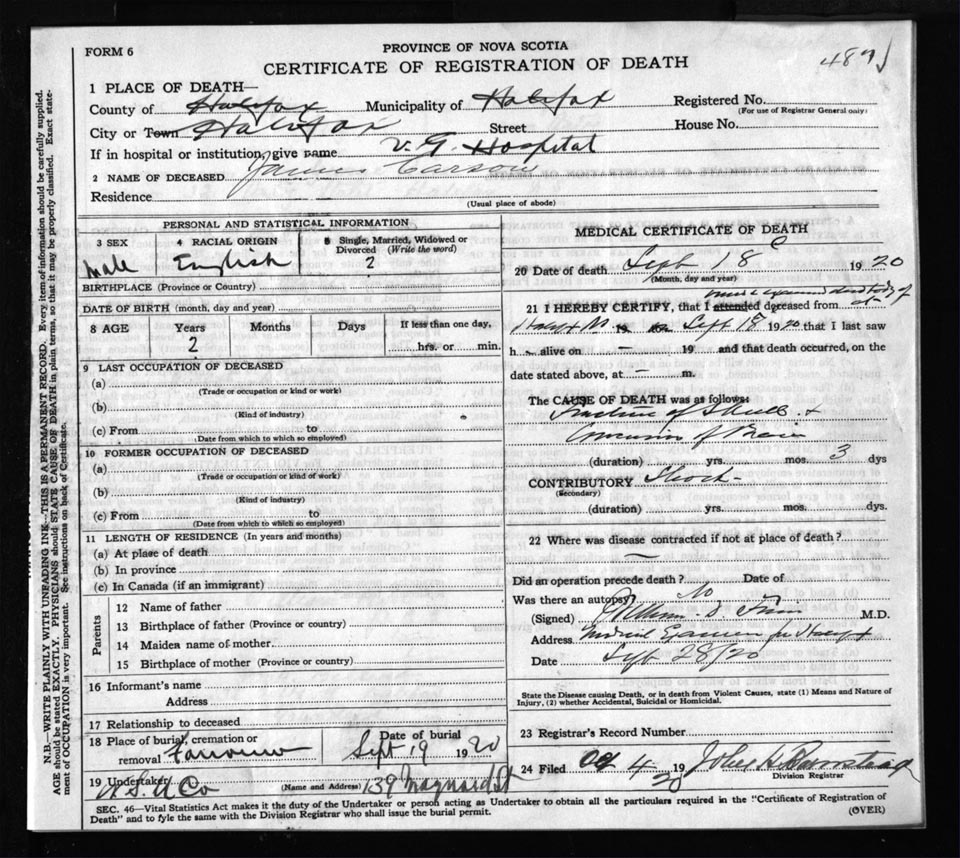 FORM 6
PROVINCE OF NOVA SCOTIA
CERTIFICATE OF REGISTRATION OF DEATH
1 PLACE OF DEATH—
County of Halifax Municipality of Halifax Registered No.
(For use of Registrar General only)
City or Town Halifax Street House No.
If in hospital or institution, give name V. G. Hospital
2 NAME OF DECEASED James Carson
Residence
(Usual place of abode)
PERSONAL AND STATISTICAL INFORMATION
3 SEX 4 RACIAL ORIGIN 5 Single, Married, Widowed or Divorced (Write the word)
Male English 2
BIRTHPLACE (Province or Country)
DATE OF BIRTH (month, day and year)
8 AGE Years Months Days If less than one day,
2 hrs. or min.
9 LAST OCCUPATION OF DECEASED
(a)
(Trade or occupation or kind or work)
(b)
(Kind of industry)
(c) From to
(Date from which to which so employed)
10 FORMER OCCUPATION OF DECEASED
(a)
(Trade or occupation or kind of work)
(b)
(Kind of industry)
(c) From to
(Date from which to which so employed)
11 LENGTH OF RESIDENCE (In years and months)
(a) At place of death
(b) In province
(c) In Canada (if an immigrant)
Parents
12 Name of father
13 Birthplace of father (Province or country)
14 Maiden name of mother
15 Birthplace of mother (Province or country)
16 Informant's name
Address
17 Relationship to deceased
18 Place of burial, cremation or removal Date of burial
Sept 19 1920
19 Undertaker
(Name and Address) 139 Maynard St
MEDICAL CERTIFICATE OF DEATH
20 Date of death Sept 18 1920
(Month, day and year)
21 I HEREBY CERTIFY, that I attended deceased from
Sept 18 1920 that I last saw
h alive on — 19 and that death occurred, on the
date stated above, at — m.
The CAUSE OF DEATH was as follows:
Fracture of Skull +
of Brain
(duration) yrs. mos. 3 dys
CONTRIBUTORY Shock
(Secondary)
(duration) yrs. mos. dys.
22 Where was disease contracted if not at place of death?
Did an operation precede death? Date of
Was there an autopsy? No
(Signed) M.D.
Address Medical Examiner for Halifax
Date Sept 28/20
State the Disease causing Death, or in death from Violent Causes, state (1) Means and Nature of
Injury, (2) whether Accidental, Suicidal or Homicidal.
23 Registrar's Record Number
24 Filed Oct 4 1920
Division Registrar
SEC. 46—Vital Statistics Act makes it the duty of the Undertaker or person acting as Undertaker to obtain all the particulars required in the "Certificate of Registration of
Death" and to fyle the same with the Division Registrar who shall issue the burial permit.
(OVER)
N.B.—WRITE PLAINLY WITH UNFADING INK—THIS IS A PERMANENT RECORD. Every item of information should be carefully supplied.
AGE should be stated EXACTLY. PHYSICIANS should STATE CAUSE OF DEATH in plain terms, so that it may be properly classified. Exact state-
ment of OCCUPATION is very important. See instructions on back of Certificate.